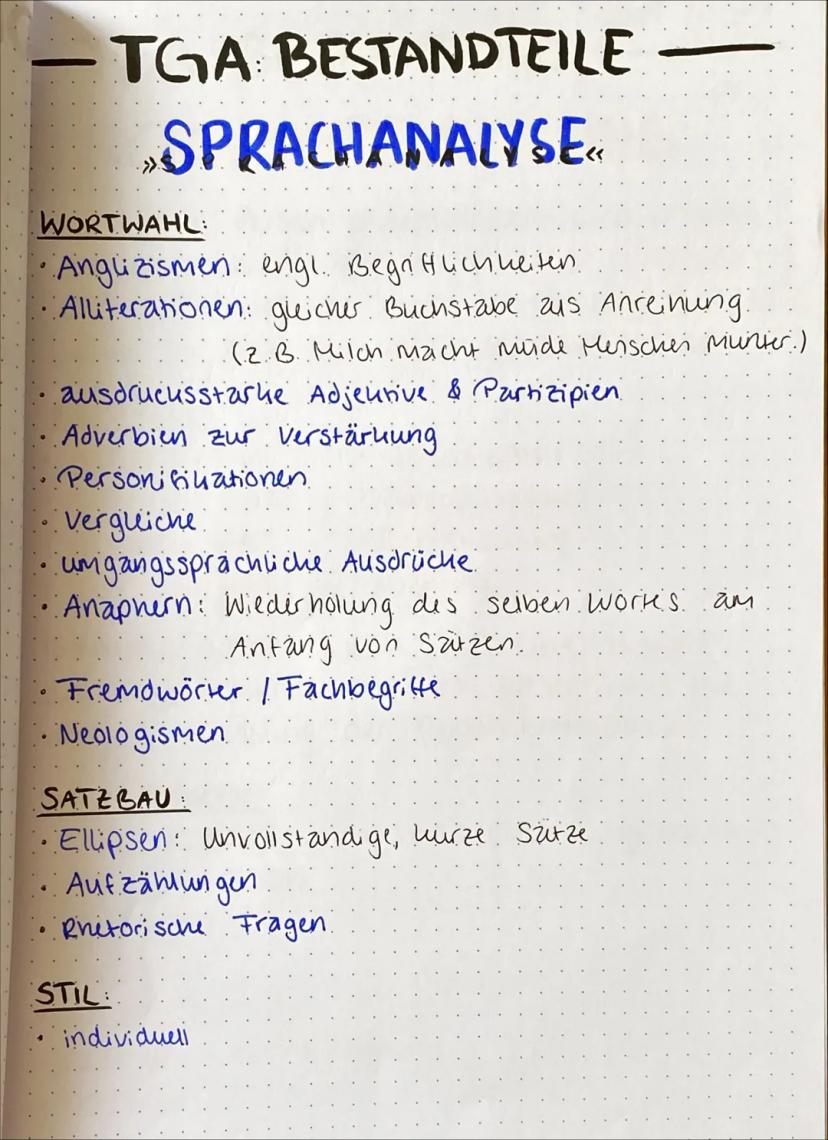 — TGA: BESTANDTEILE —
SPRACHANALYSE
»SPRACHANALYSE«
WORTWAHL:
· Anglizismen: engl. Begrifflichkeiten
· Alliterationen: gleicher Buchstabe als Anreihung
(z.B. Milch macht müde Menschen munter.)
· ausdrucksstarke Adjektive & Partizipien
· Adverbien zur Verstärkung
· Personifikationen
· Vergleiche
· umgangssprachliche Ausdrücke
· Anaphern: Wiederholung des selben Wortes am
Anfang von Sätzen.
· Fremdwörter / Fachbegriffe
· Neologismen
SATZBAU:
· Ellipsen: Unvollständige, kurze Sätze
· Aufzählungen
· Rhetorische Fragen
STIL:
· individuell